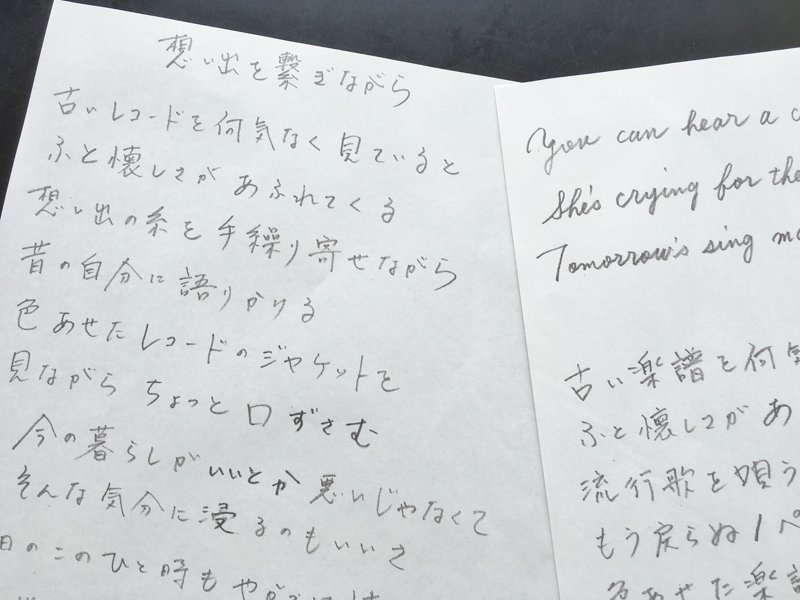 想い出を繋ぎながら
古いレコードを何気なく見ていると
ふと懐しさがあふれてくる
想い出の糸を手繰り寄せながら
昔の自分に語りかける
色あせたレコードのジャケットを
見ながら ちょっと口ずさむ
今の暮らしがいいとか悪いじゃなくて
そんな気分に浸るのもいいさ
日のこのひと時も
You can hear a
She's crying for the
Tomorrow's sing
古い楽譜を何気
ふと懐しさがあ
流行歌を唄う
もう戻らぬ1ペ
色あせた楽譜